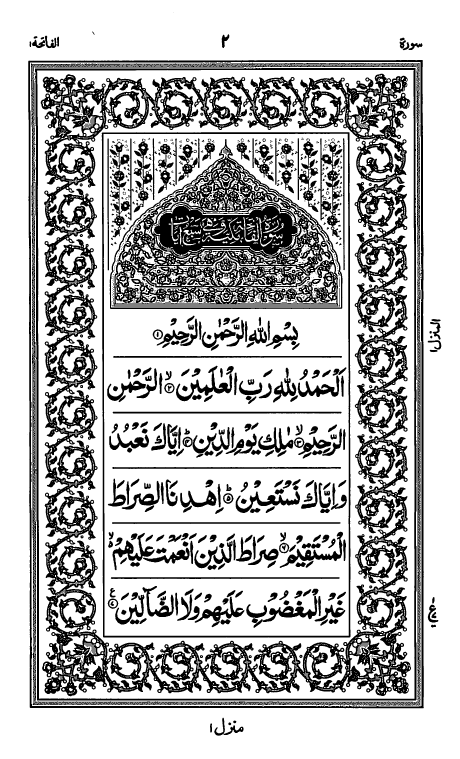 سورة ٢ الفاتحة ١
سورة الفاتحة مكية وهي سبع آيات
بِسْمِ اللّٰهِ الرَّحْمٰنِ الرَّحِيْمِ ۝١
اَلْحَمْدُ لِلّٰهِ رَبِّ الْعٰلَمِيْنَ ۝٢ الرَّحْمٰنِ
الرَّحِيْمِ ۝٣ مٰلِكِ يَوْمِ الدِّيْنِ ۝٤ اِيَّاكَ نَعْبُدُ
وَاِيَّاكَ نَسْتَعِيْنُ ۝٥ اِهْدِنَا الصِّرَاطَ
الْمُسْتَقِيْمَ ۝٦ صِرَاطَ الَّذِيْنَ اَنْعَمْتَ عَلَيْهِمْ
غَيْرِ الْمَغْضُوْبِ عَلَيْهِمْ وَلَا الضَّآلِّيْنَ ۝٧
المنزل ١
منزل ١